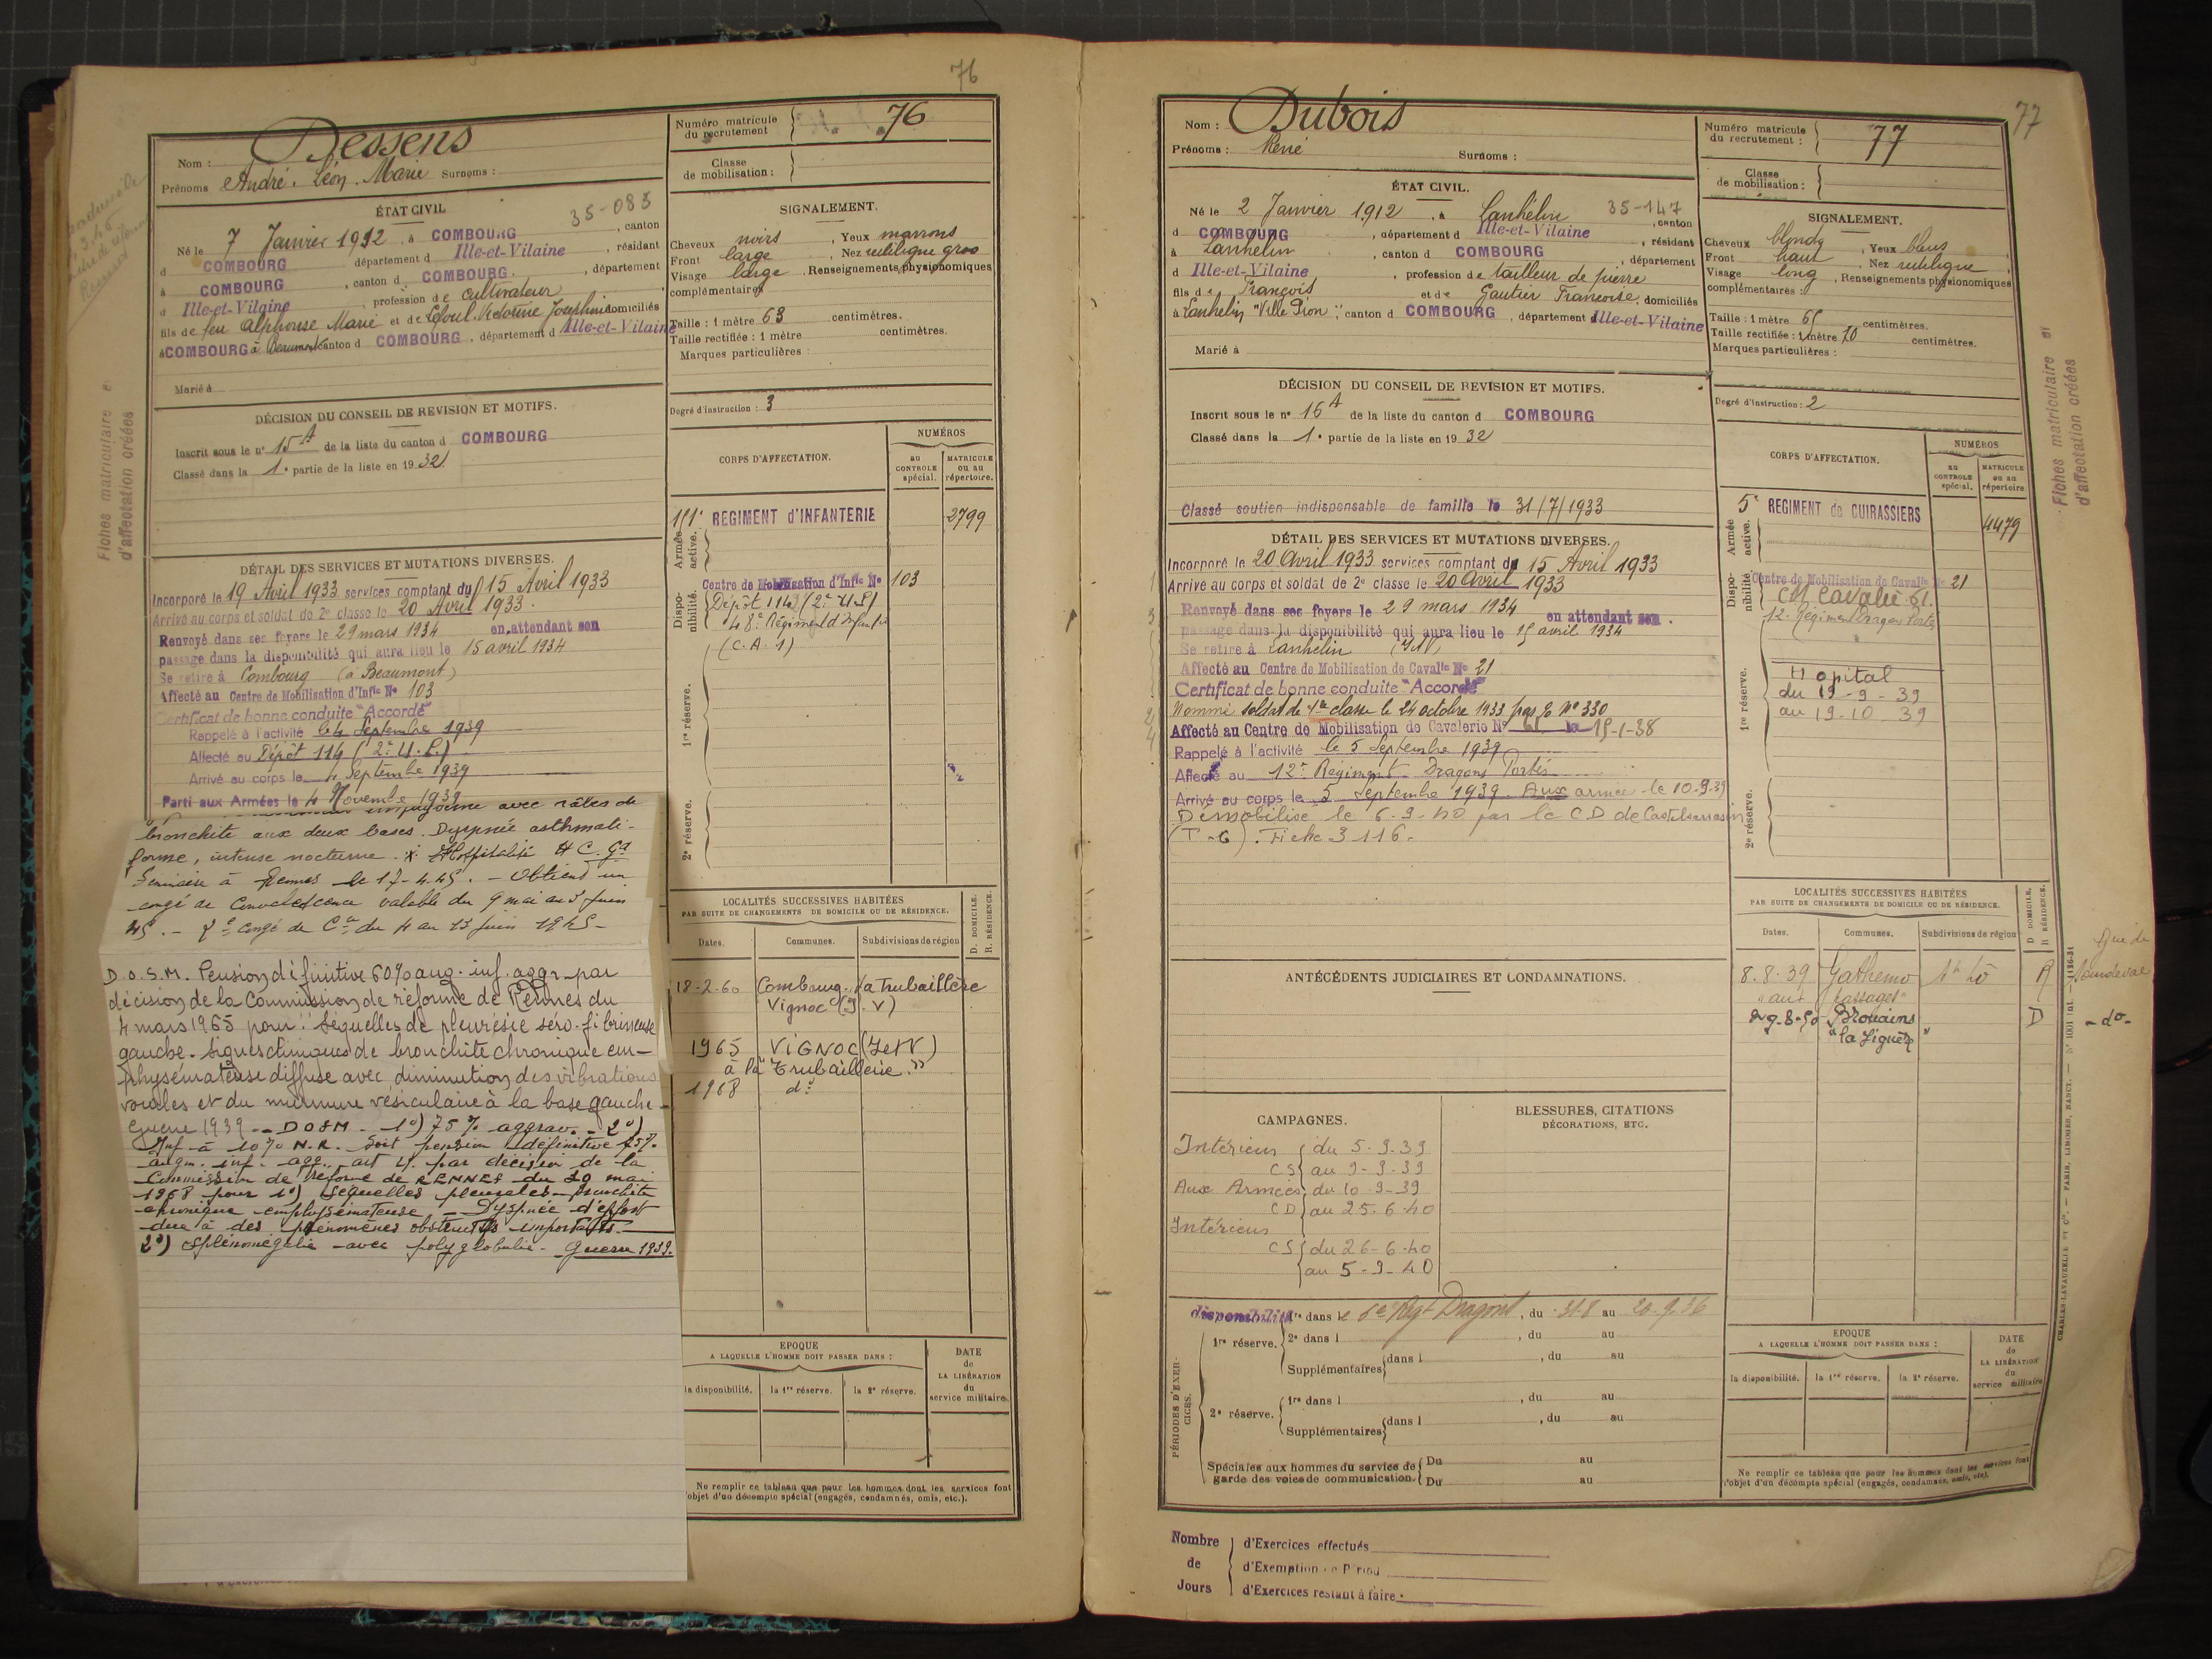 76
Nom : Dessens
Prénoms André, Léon, Marie Surnoms :
Numéro matricule du recrutement 76
Classe de mobilisation :
ÉTAT CIVIL
35-085
Né le 7 Janvier 1912, à COMBOURG, canton
d COMBOURG département d Ille-et-Vilaine, résidant
à COMBOURG, canton d COMBOURG, département
d Ille-et-Vilaine, profession de cultivateur
fils de feu Alphonse Marie et de Victorine Joséphine domiciliés
à COMBOURG à Beaumont canton d COMBOURG, département d Ille-et-Vilaine
Marié à
SIGNALEMENT.
Cheveux noirs, Yeux marrons
Front large, Nez rectiligne gros
Visage large, Renseignements physionomiques
complémentaires
Taille : 1 mètre 63 centimètres.
Taille rectifiée : 1 mètre centimètres.
Marques particulières :
Degré d'instruction : 3
DÉCISION DU CONSEIL DE REVISION ET MOTIFS.
Inscrit sous le n° 15 A de la liste du canton d COMBOURG
Classé dans la 1e partie de la liste en 1932
Fiches matriculaire et
d'affectation créées
CORPS D'AFFECTATION.
NUMÉROS
au CONTROLE spécial.
MATRICULE ou au répertoire.
Armée active.
REGIMENT d'INFANTERIE 2799
Disponibilité.
Centre de Mobilisation d'Infie N° 103
Dépôt 114 (2e U.P)
48e Régiment d'Infanterie
(C.A.1)
1re réserve.
2e réserve.
DÉTAIL DES SERVICES ET MUTATIONS DIVERSES.
Incorporé le 19 Avril 1933 services comptant du 15 Avril 1933
Arrivé au corps et soldat de 2e classe le 20 Avril 1933.
Renvoyé dans ses foyers le 29 mars 1934 en attendant son
passage dans la disponibilité qui aura lieu le 15 avril 1934
Se retire à Combourg (à Beaumont)
Affecté au Centre de Mobilisation d'Infie N° 103
Certificat de bonne conduite "Accordé"
Rappelé à l'activité le 4 Septembre 1939
Affecté au Dépôt 114 (2e U.P.)
Arrivé au corps le 4 Septembre 1939
Parti aux Armées le 4 Novembre 1939
avec râles de
bronchite aux deux bases. Dyspnée asthmati-
forme, intense nocturne. Hospitalisé H C. Gd
Séminaire à Rennes le 17-4-45. - Obtient un
congé de Convalescence valable du 9 mai au 3 juin
45. - 2e Congé de Cce du 4 au 13 juin 1945 -
D.O.S.M. Pension définitive 60% aug. inf. aggr. par
décision de la Commission de réforme de Rennes du
4 mars 1965 pour : Séquelles de pleurésie séro-fibrineuse
gauche. Signes cliniques de bronchite chronique em-
physémateuse diffuse avec diminution des vibrations
vocales et du murmure vésiculaire à la base gauche -
Guerre 1939 - DOSM - 1°) 75% aggrav. - 2°)
Inf - à 10% N.R. Soit pension définitive 75%
augm. inf. agg. art 4. par décision de la
Commission de réforme de RENNES du 20 mai
1968 pour 1°) Séquelles pleurales - bronchite
chronique emphysémateuse - Dyspnée d'effort
due à des phénomènes obstructifs importants.
2°) Splénomégalie avec polyglobulie - Guerre 1939.
LOCALITÉS SUCCESSIVES HABITÉES
PAR SUITE DE CHANGEMENTS DE DOMICILE OU DE RÉSIDENCE.
D. DOMICILE.
R. RÉSIDENCE.
Dates. Communes. Subdivisions de région
18-2-60 Combourg. la Trubaillère
Vignoc (I. V)
1965 VIGNOC (I et V)
à la "Trubaillerie"
1968 d°
EPOQUE
A LAQUELLE L'HOMME DOIT PASSER DANS :
la disponibilité. la 1re réserve. la 2e réserve.
DATE de LA LIBÉRATION du service militaire.
Ne remplir ce tableau que pour les hommes dont les services font
l'objet d'un décompte spécial (engagés, condamnés, omis, etc.).
77
Nom : Dubois
Prénoms : René Surnoms :
Numéro matricule du recrutement : 77
Classe de mobilisation :
ÉTAT CIVIL.
Né le 2 Janvier 1912, à Lanhélin 35-147, canton
d COMBOURG, département d Ille-et-Vilaine, résidant
à Lanhelin, canton d COMBOURG, département
d Ille-et-Vilaine, profession de tailleur de pierre
fils de François et de Gautier Francoise, domiciliés
à Lanhelin "Ville Pion", canton d COMBOURG, département d Ille-et-Vilaine
Marié à
SIGNALEMENT.
Cheveux blonds, Yeux bleus
Front haut, Nez rectiligne
Visage long, Renseignements physionomiques
complémentaires :
Taille : 1 mètre 65 centimètres.
Taille rectifiée : 1 mètre 70 centimètres.
Marques particulières :
Degré d'instruction : 2
DÉCISION DU CONSEIL DE REVISION ET MOTIFS.
Inscrit sous le n° 16 A de la liste du canton d COMBOURG
Classé dans la 1e partie de la liste en 1932
Classé soutien indispensable de famille le 31/7/1933
Fiches matriculaire et
d'affectation créées
CORPS D'AFFECTATION.
NUMÉROS
au CONTROLE spécial.
MATRICULE ou au répertoire
Armée active.
5e REGIMENT de CUIRASSIERS 4479
Disponibilité
Centre de Mobilisation de Cavalie N° 21
CM Cavalie 61.
12e Régiment Dragons Portés
1re réserve.
Hopital
du 19-9-39
au 19-10-39
2e réserve.
DÉTAIL DES SERVICES ET MUTATIONS DIVERSES.
Incorporé le 20 Avril 1933 services comptant du 15 Avril 1933
Arrivé au corps et soldat de 2e classe le 20 Avril 1933
Renvoyé dans ses foyers le 29 mars 1934 en attendant son
passage dans la disponibilité qui aura lieu le 15 avril 1934
Se retire à Lanhelin (I&V)
Affecté au Centre de Mobilisation de Cavalie N° 21
Certificat de bonne conduite "Accordé"
Nommé soldat de 1re classe le 24 octobre 1933 N° 330
Affecté au Centre de Mobilisation de Cavalerie N° 61 le 15-1-38
Rappelé à l'activité le 5 Septembre 1939
Affecté au 12e Régiment Dragons Portés
Arrivé au corps le 5 Septembre 1939. Aux armée le 10-9-39
Démobilisé le 6-9-40 par le C D de Castelsarrasin
(T-G). Fiche 3116.
ANTÉCÉDENTS JUDICIAIRES ET CONDAMNATIONS.
LOCALITÉS SUCCESSIVES HABITÉES
PAR SUITE DE CHANGEMENTS DE DOMICILE OU DE RÉSIDENCE.
D DOMICILE.
R RÉSIDENCE.
Dates. Communes. Subdivisions de région
8.8.39 Gathemo St Lô R
"aux passages"
29-8-50 Brouains " D - d° -
CAMPAGNES.
Intérieur du 5-9-39
CS au 9-9-39
Aux Armées du 10-9-39
CD au 25-6-40
Intérieur
CS du 26-6-40
au 5-9-40
BLESSURES, CITATIONS
DÉCORATIONS, ETC.
PÉRIODES D'EXERCICES.
disponibilité 1re dans le 6e Rgt Dragons, du 31-8 au 20.9.36
1re réserve. 2e dans l, du au
Supplémentaires dans l, du au
2e réserve. 1re dans l, du au
Supplémentaires dans l, du au
Spéciales aux hommes du service de garde des voies de communication. Du au
Du au
EPOQUE
A LAQUELLE L'HOMME DOIT PASSER DANS :
la disponibilité. la 1re réserve. la 2e réserve.
DATE de LA LIBÉRATION du service militaire
Ne remplir ce tableau que pour les hommes dont les services font
l'objet d'un décompte spécial (engagés, condamnés, omis, etc).
Nombre de Jours
d'Exercices effectués
d'Exemption de Périod
d'Exercices restant à faire